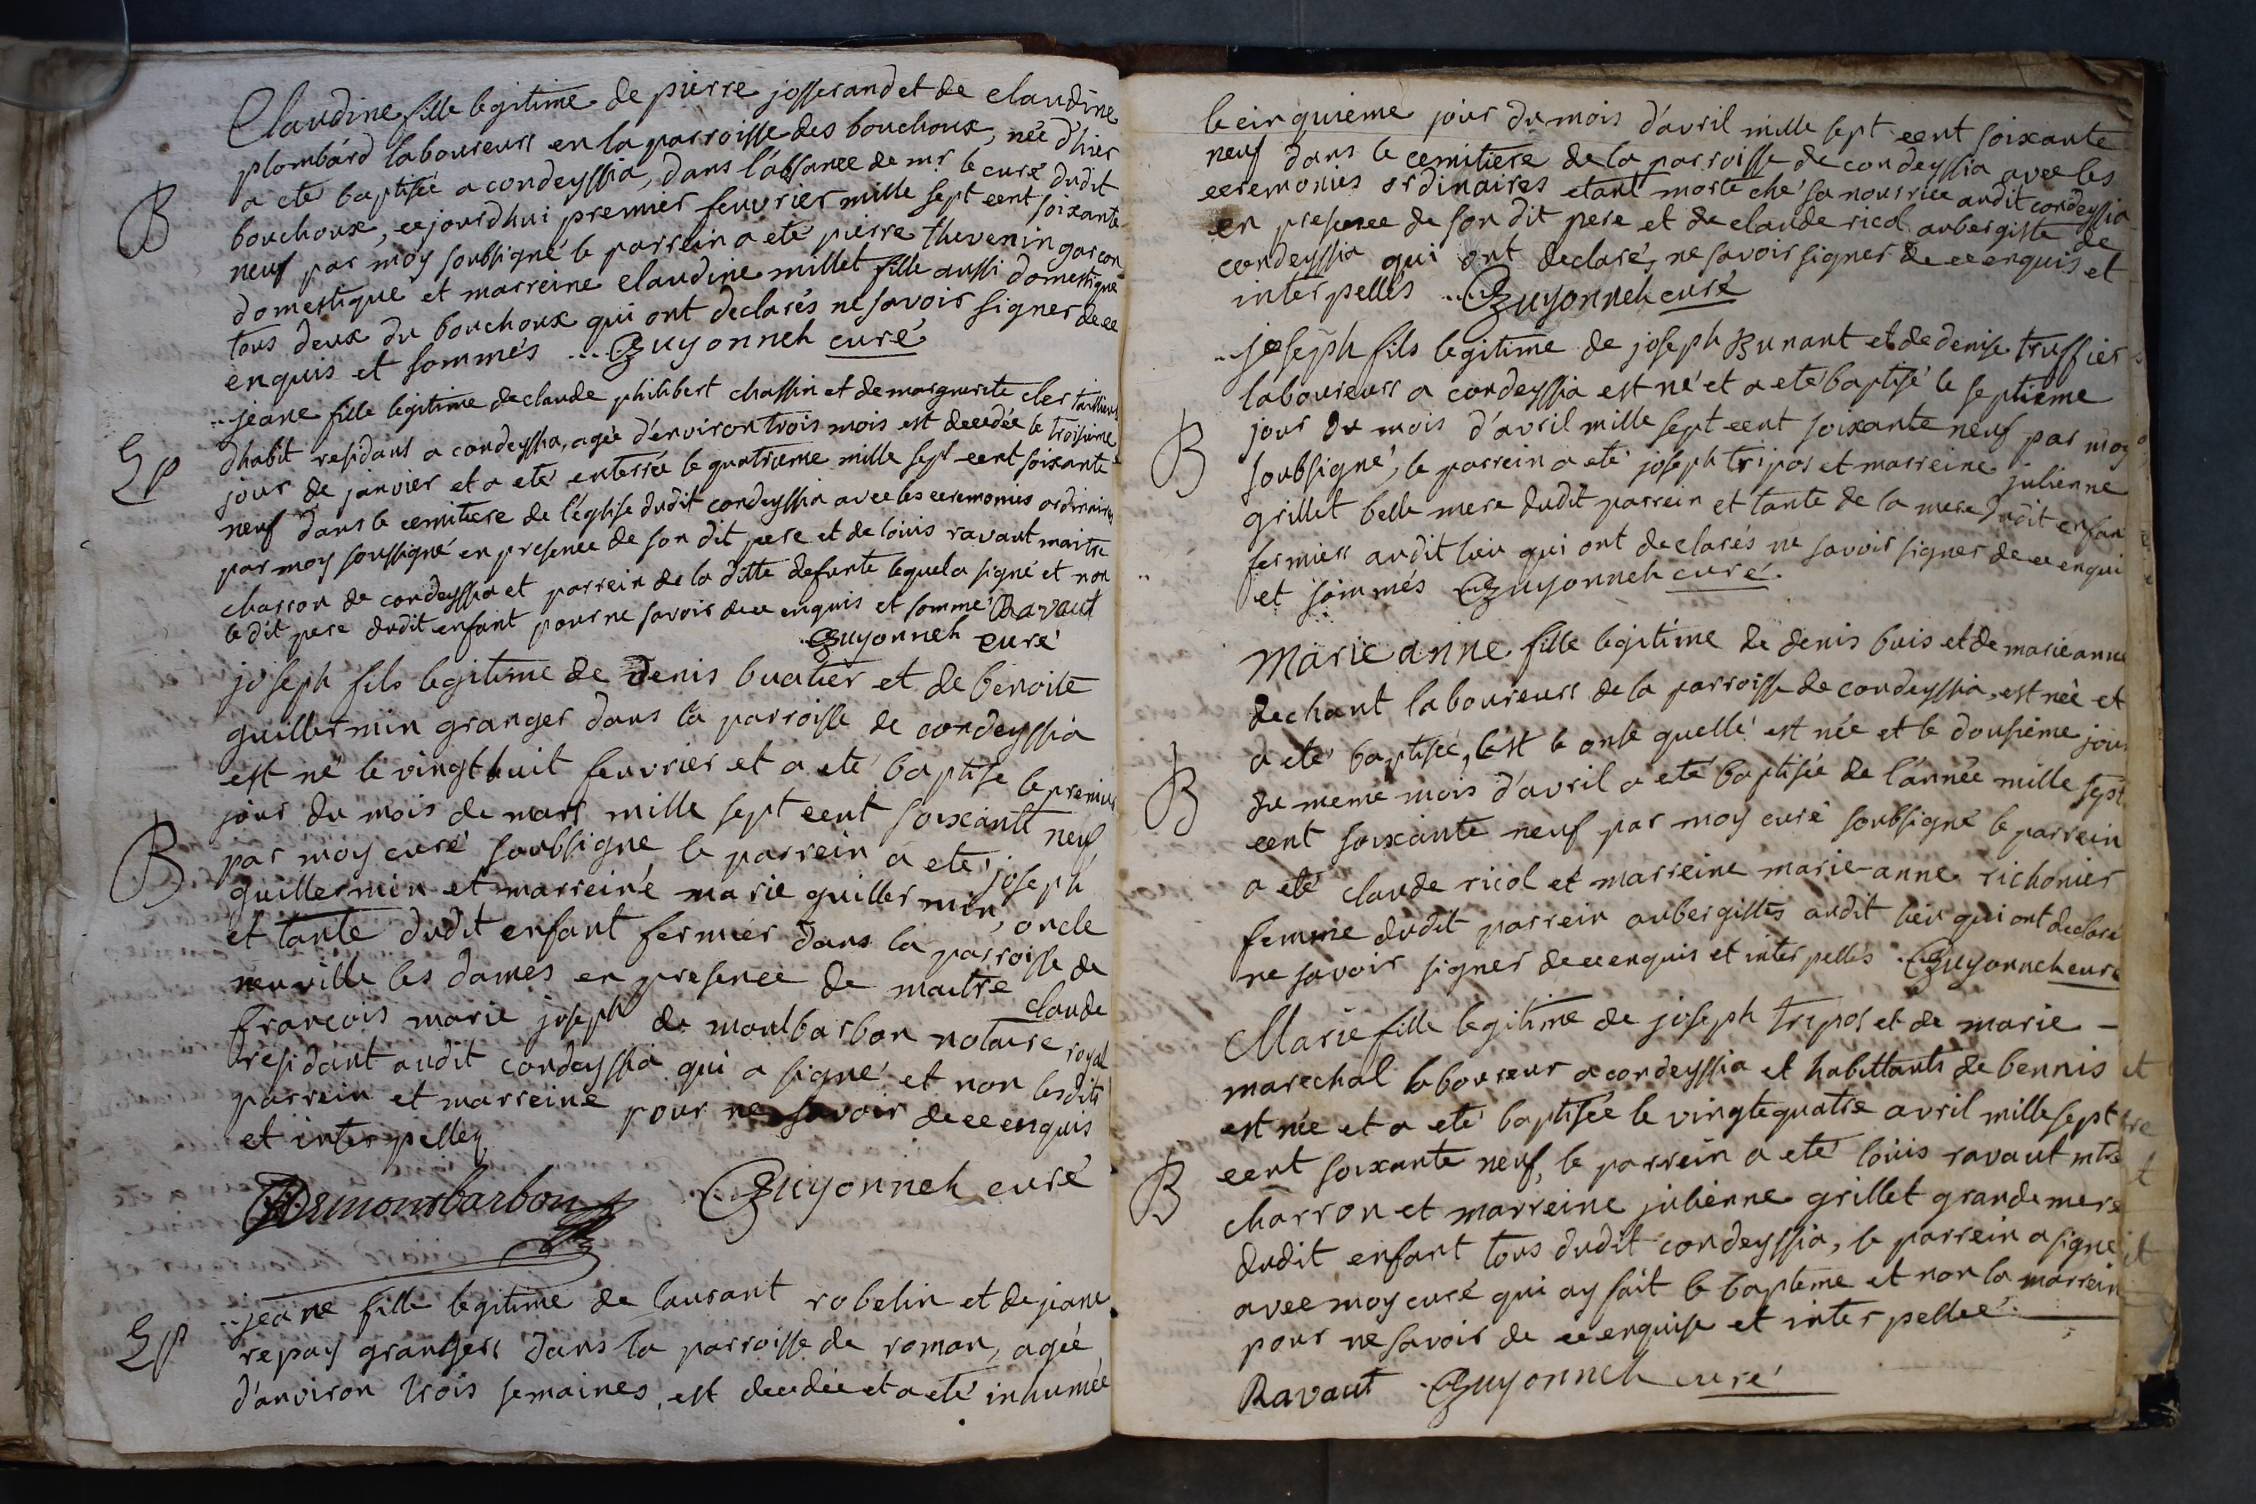 Claudine fille legitime de pierre josserand et de claudine
plombard laboureurs en la parroisse des bouchoux, née d'hier
a eté baptisée a condeyssia, dans l'absance de mr. le curé dudit
B
bouchoux, cejourd'hui premier feuvrier mille sept cent soixante
neuf par moy soubsigné le parrein a eté pierre thevenin garcon
domestique et marreine claudine millet fille aussi domestique
tous deux du bouchoux qui ont declarés ne savoir signer de ce
enquis et sommés ... Guyonneh curé
jeane fille legitime de claude philibert chassin et de marguerite cler tailleurs
d'habit residant a condeyssia, agée d'environ trois mois est decedée le troisieme
Sp
jour de janvier et a eté enterrée le quatrieme mille sept cent soixante
neuf dans le cemitiere de l'église dudit condeyssia avec les ceremonies ordinaires
par moy soussigné en presence de son dit pere et de louis ravaut maitre
charron de condeyssia et parrein de la ditte defunte lequel a signé et non
le dit pere dudit enfant pour ne savoir de ce enquis et sommé Ravaut
Guyonneh curé
joseph fils legitime de Denis buatier et de benoite
guillermin granger dans la parroisse de condeyssia
est né le vingt huit feuvrier et a eté baptisé le premier
jour du mois de mars mille sept cent soixante neuf
B
par moy curé soubsigné le parrein a eté joseph
guillermin et marreine marie guillermin, oncle
et tante dudit enfant fermier dans la parroisse de
neuville les dames en presence de maitre claude
francois marie joseph de montbarbon notaire royal
residant audit condeyssia qui a signé et non lesdits
parrein et marreine pour ne savoir de ce enquis
et interpelley
Demontbarbon Guyonneh curé
jeane fille legitime de laurant robelin et de jeane
Sp
repay grangers dans la parroisse de roman, agée
d'anviron trois semaines, est decedée et a eté inhumée
le cinquieme jour du mois d'avril mille sept cent soixante
neuf dans le cemitiere de la parroisse de condeyssia avec les
ceremonies ordinaires etant morte ché sa nourrice audit condeyssia
en presence de son dit pere et de claude ricol aubergiste de
condeyssia qui ont declarés, ne savoir signer de ce enquis et
interpellés ... Guyonneh curé
joseph fils legitime de joseph Bunant et de denise truffier
laboureurs a condeyssia est né et a eté baptisé le septieme
jour du mois d'avril mille sept cent soixante neuf par moy
B
soubsigné, le parrein a eté joseph tripos et marreine julienne
grillet belle mere dudit parrein et tante de la mere dudit enfan
fermiers audit lieu qui ont declarés ne savoir signer de ce enqui
et sommés Guyonneh curé.
Marie anne fille legitime de denis buis et de marie anne
dechant laboureurs de la parroisse de condeyssia, est née et
a eté baptisée, c'est le onse quelle est née et le dousieme jour
B
du meme mois d'avril a eté baptisée de l'année mille sept
cent soixante neuf par moy curé soubsigné le parrein
a eté claude ricol et marreine marie-anne richonier
femme dudit parrein aubergistes audit lieu qui ont declaré
ne savoir signer de ce enquis et interpellés Guyonneh curé
Marie fille legitime de joseph tripos et de marie -
marechal laboureur a condeyssia et habittants de bennis
est née et a eté baptisée le vingtequatre avril mille sept
B
cent soixante neuf, le parrein a eté louis ravaut mtre
charron et marreine julienne grillet grande mere
dudit enfant tous dudit condeyssia, le parrein a signé
avec moy curé qui ay fait le bapteme et non la marrein
pour ne savoir de ce enquise et interpellée.
Ravaut Guyonneh curé